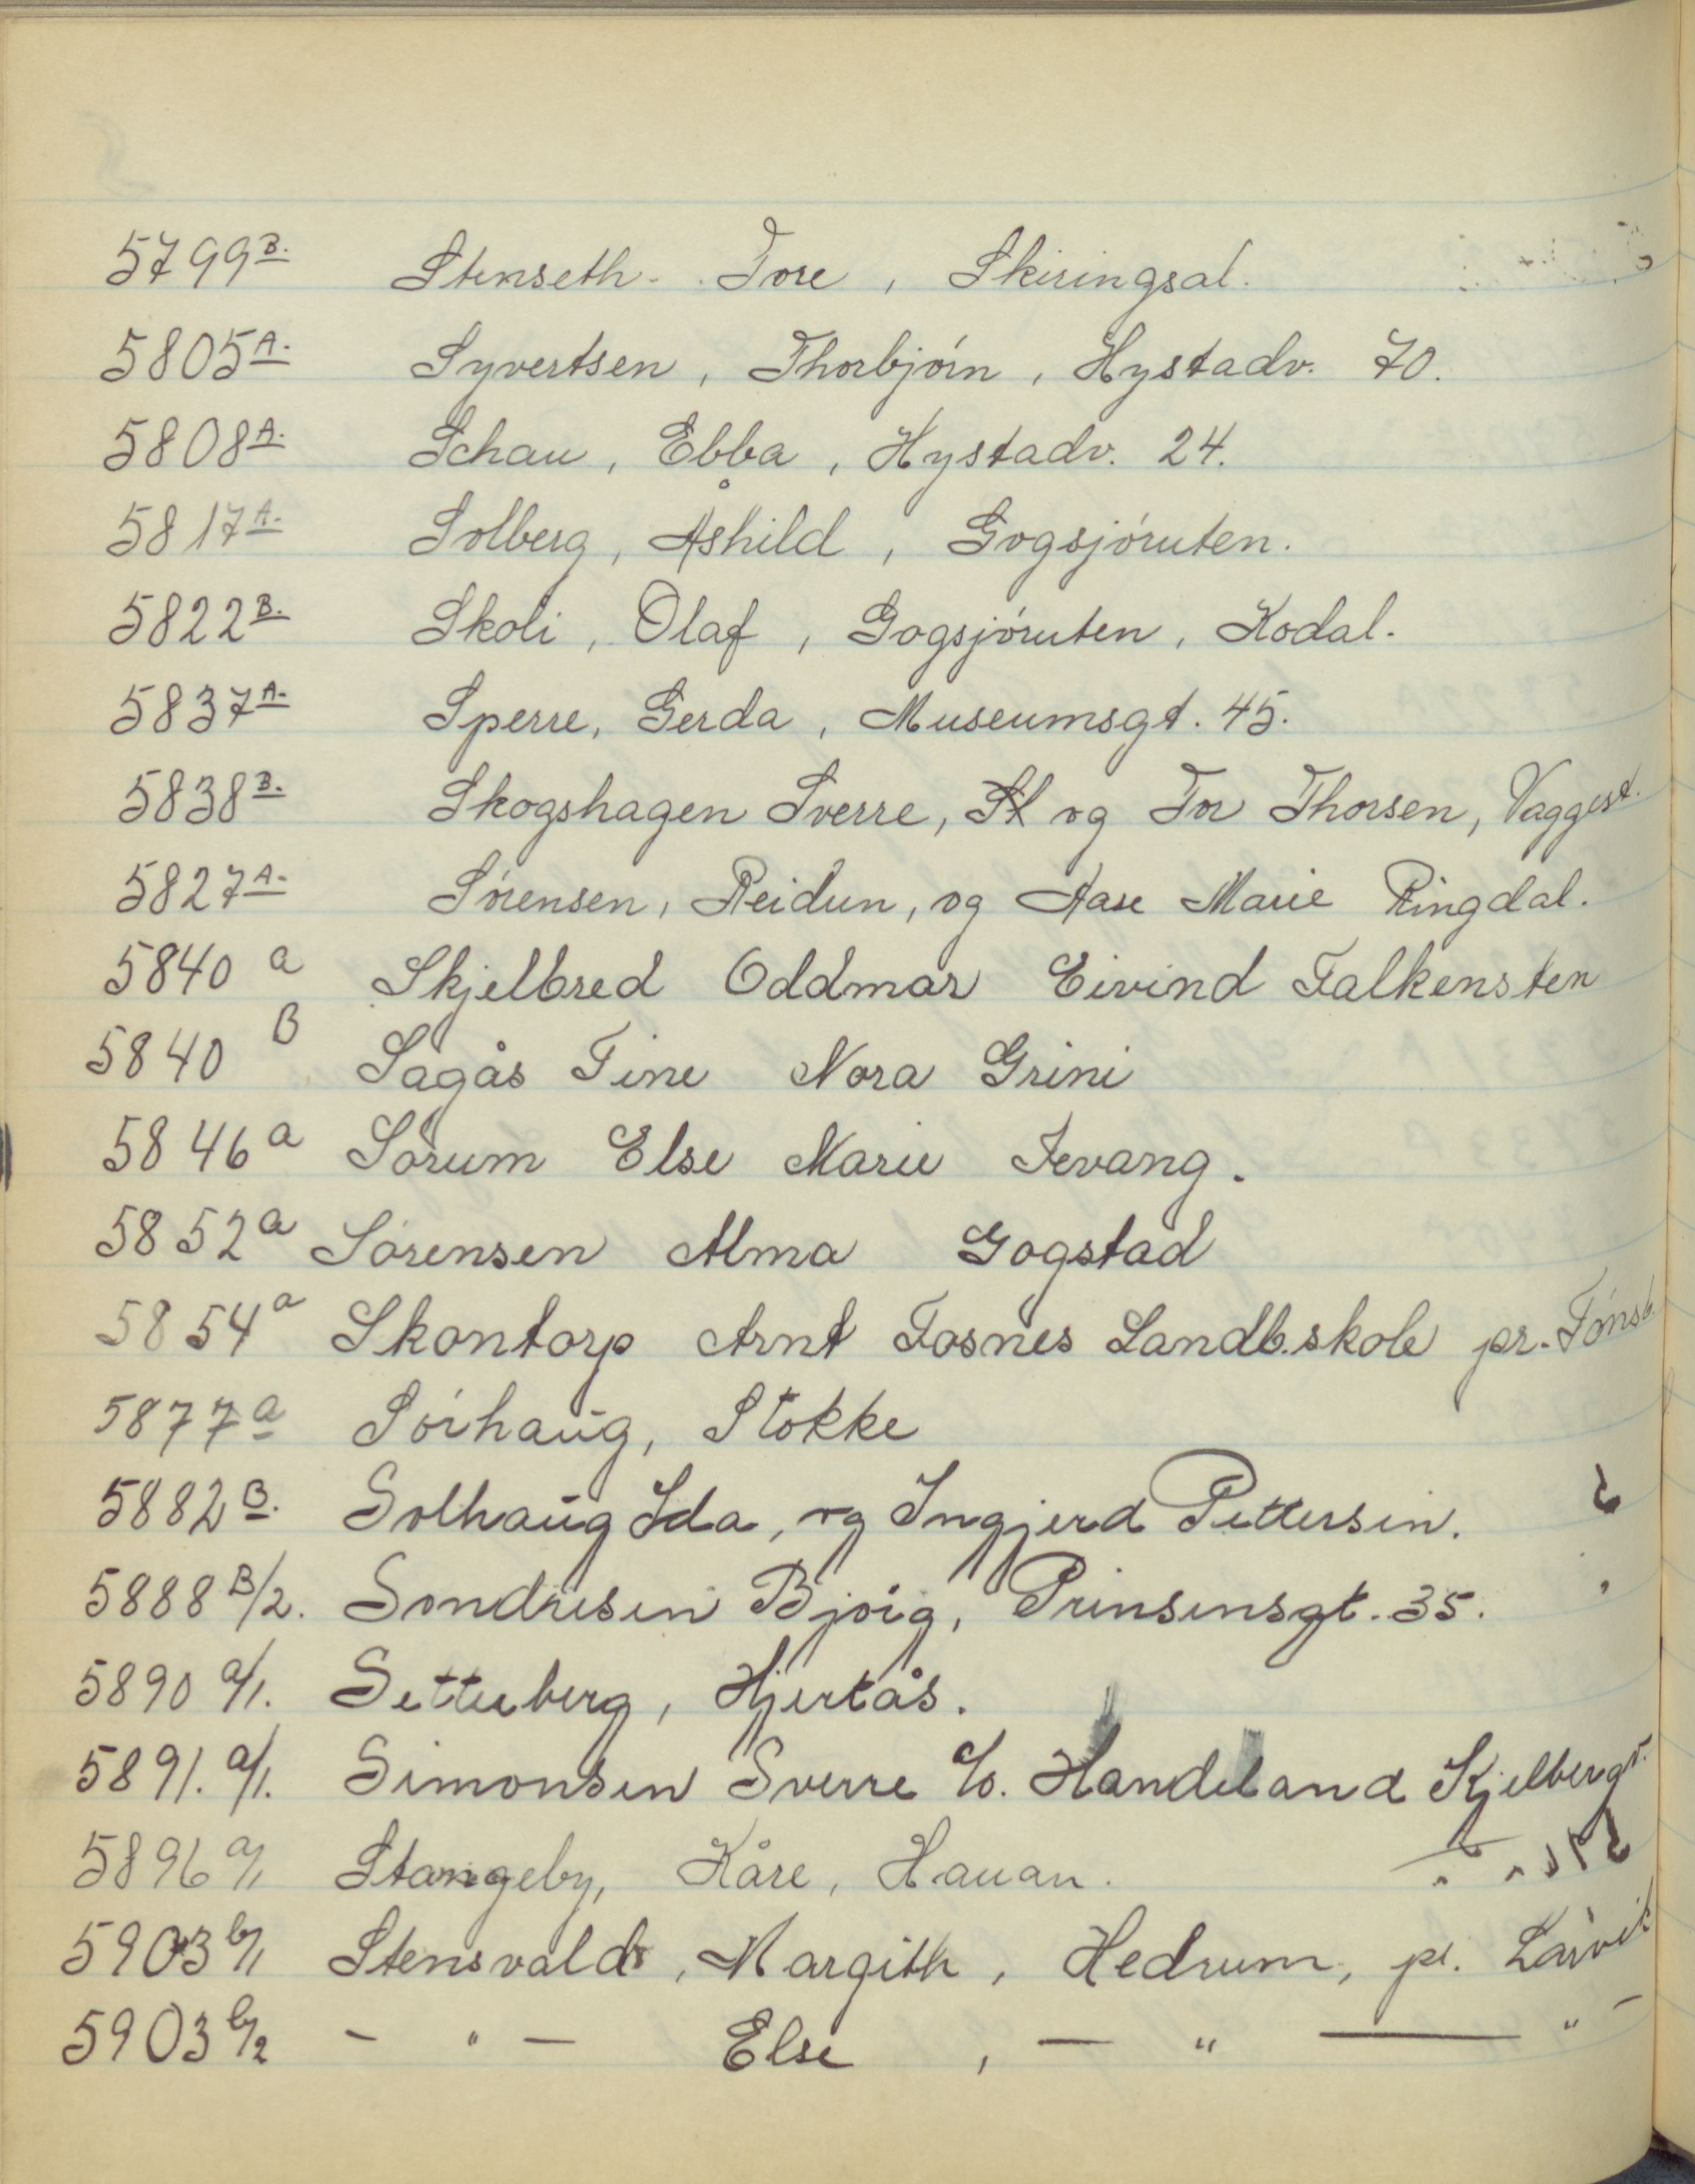 5799 B. Stenseth. Tore, Skiringsal.
5805 A. Syvertsen, Thorbjórn, Hystadv. 70.
5808 A. Schau, Ebba, Hystadv. 24.
5817 A. Solberg, Åshild, Gogsjóruten.
5822 B. Skoli, Olaf, Gogsjóruten, Kodal.
5837 A. Sperre, Gerda, Museumsgt. 45.
5838 B. Skogshagen Sverre, og Tor Thorsen, Vaggest.
5827 A. Sórensen, Reidun, og Aase Marie Ringdal.
5840 a Skjelbred Oddmar Eivind Falkensten
5840 B Sagås Tine Nora Grini
5846 a Sórum Else Marie Jevang.
5852 a Sórensen Alma Gogstad
5854 a Skontorp Arnt Fosnes Landb.skole pr. Tónsb.
5877 a Sórhaug, Stokke
5882 B. Solhaug Ida, og Ingjerd Pettersen.
5888 B/2. Sondresen Bjórg, Prinsensgt. 35.
5890 a/1. Setterberg, Hjertås.
5891. a/1. Simonsen Sverre c/o. Handeland Kjelbergv.
5896 a/1 Stangeby, Kåre, Hauan.
5903 b/1 Stensvald, Margith, Hedrum, pr. Larvik
5903 b/2 - " - Else, - " - " -